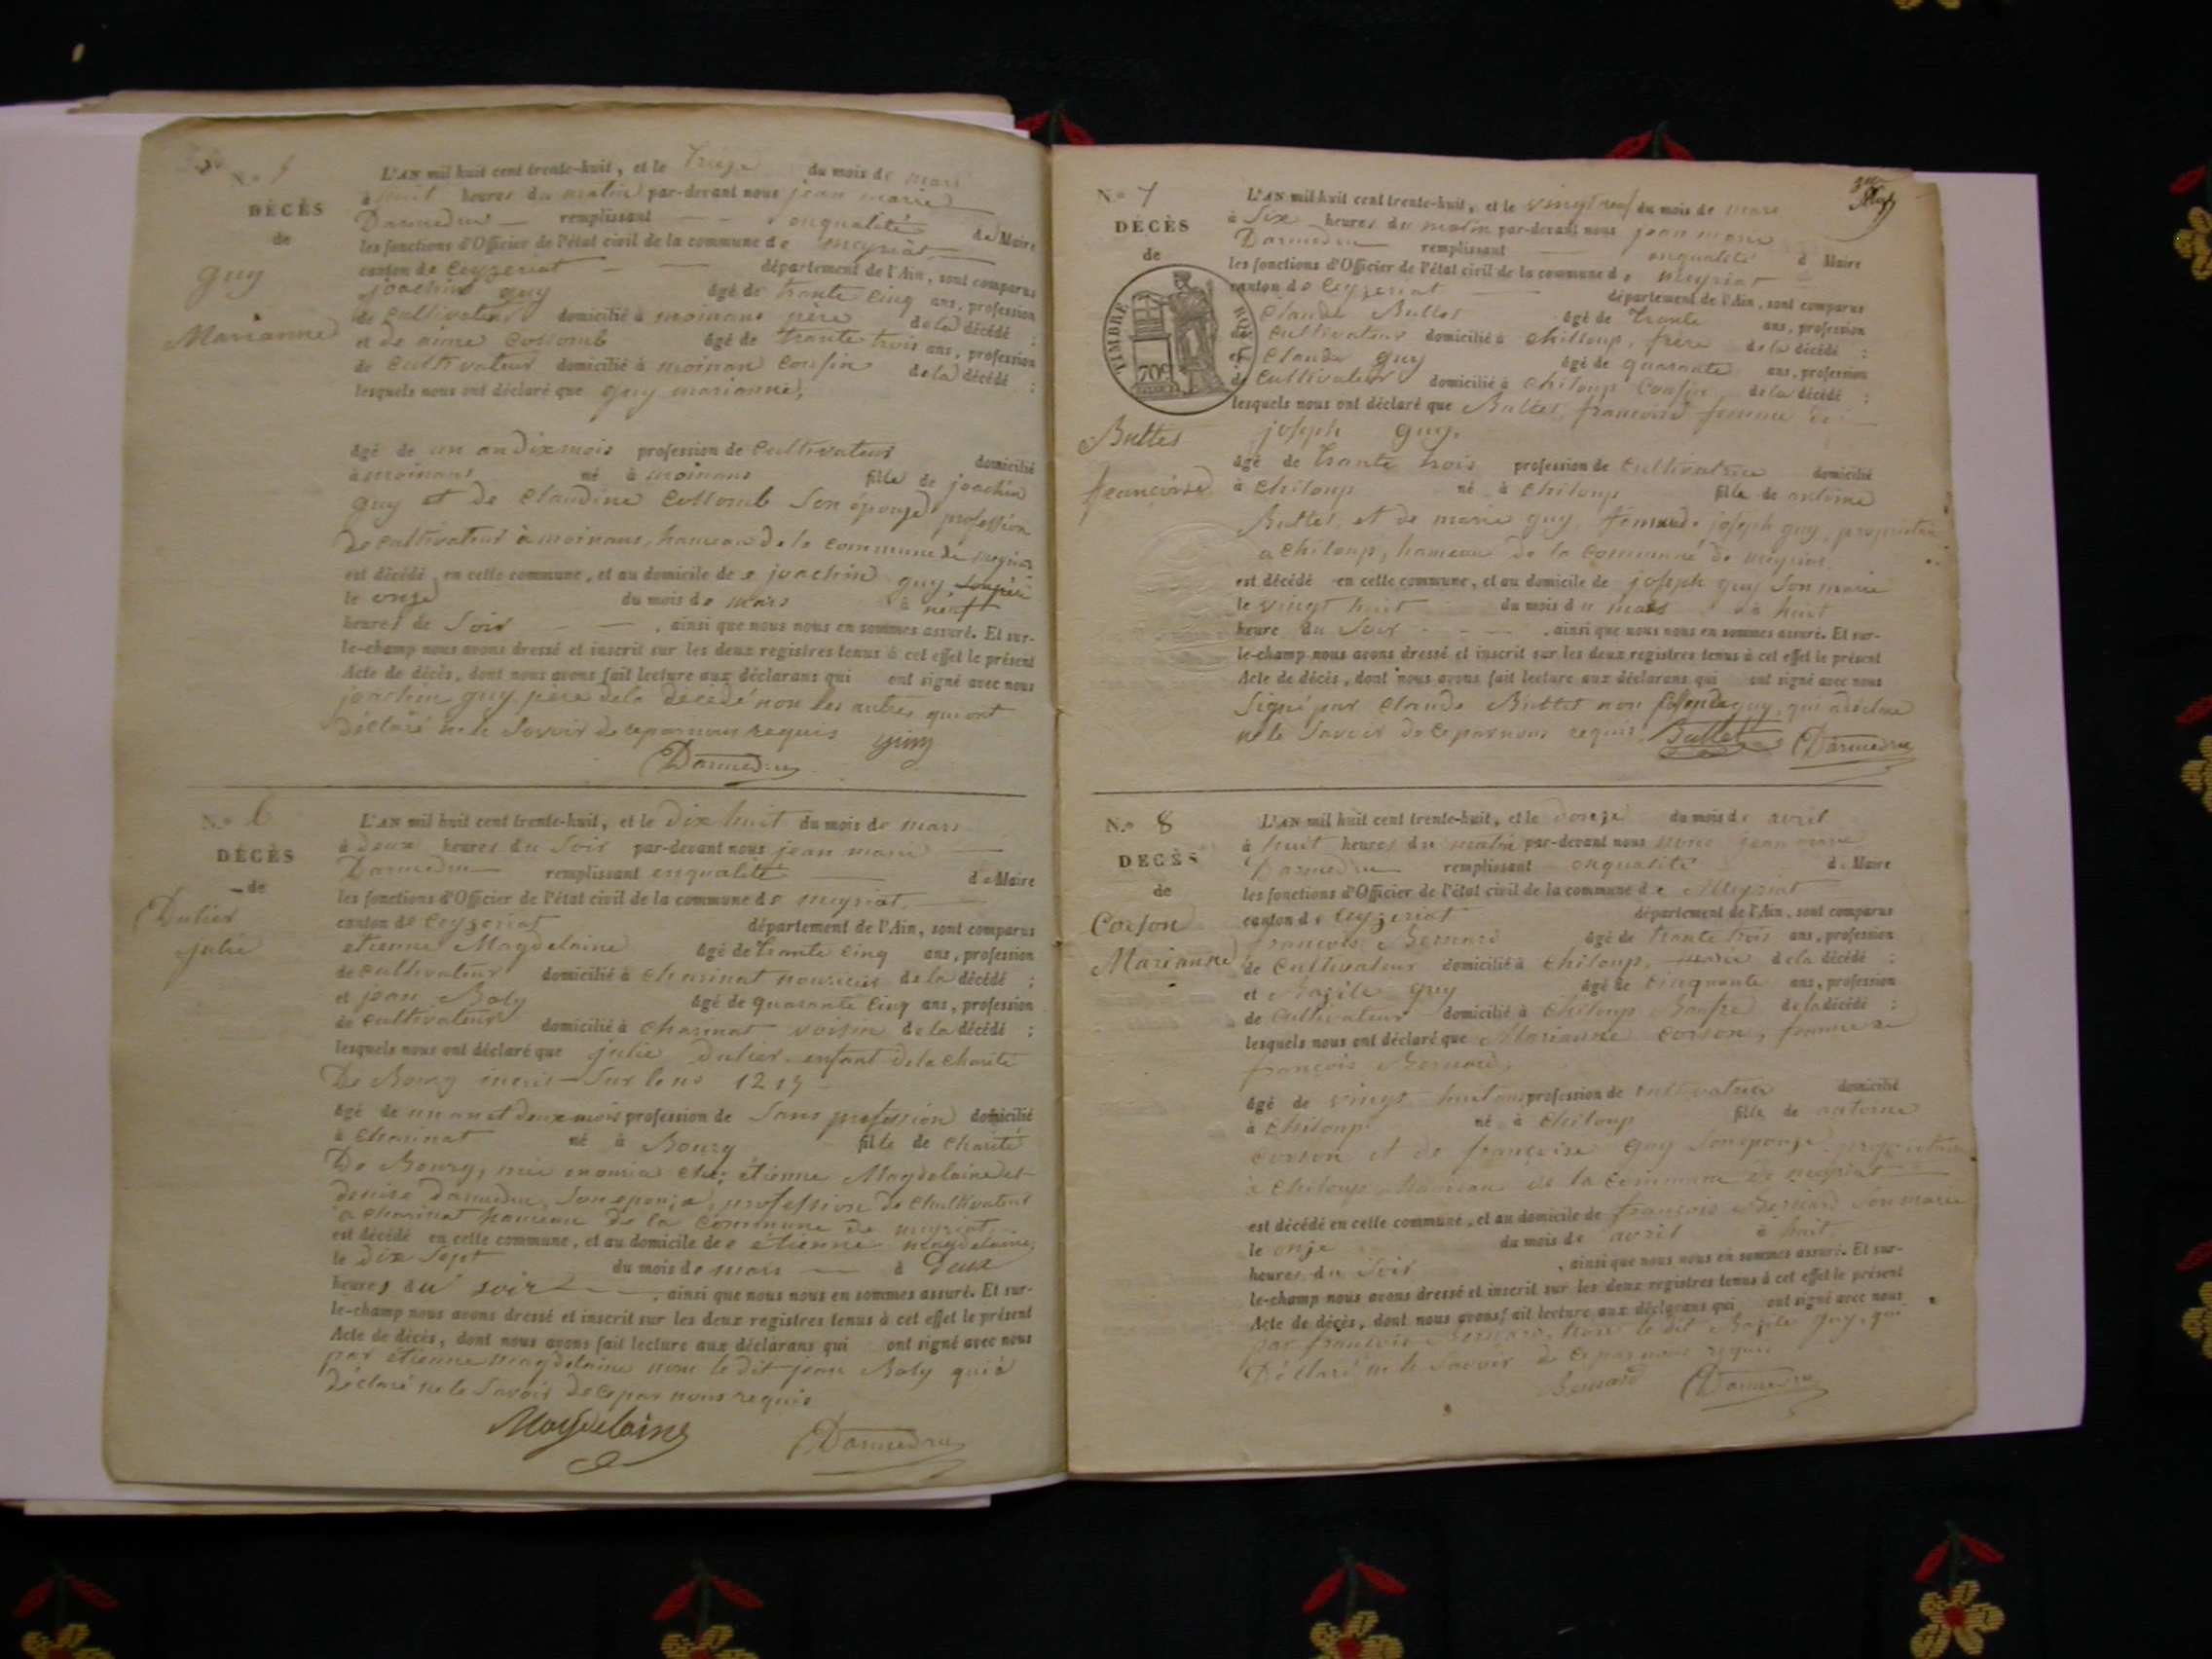 N.o 5
DÉCÈS
de
guy
Marianne
L'AN mil huit cent trente-huit, et le treize du mois de mars
à huit heures du matin par-devant nous jean marie
Darmedru remplissant enqualité de Maire
les fonctions d'Officier de l'état civil de la commune de meyriat
canton de Ceyzeriat département de l'Ain, sont comparus
joachin guy âgé de trante cinq ans, profession
de cultivateur domicilié à moinans père de la décédé ;
et de aime Collomb âgé de trante trois ans, profession
de cultivateur domicilié à moinan cousin de la décédé :
lesquels nous ont déclaré que guy marianne,
âgé de un an dix mois profession de Cultivateur domicilié
à moinans né à moinans fille de joachin
guy et de Claudine Collomb son épouse profession
de cultivateur à moinans, hameau de la commune de meyriat
est décédé en cette commune, et au domicile de joachin guy
le onze du mois de mars à neuf
heures de soir , ainsi que nous nous en sommes assuré. Et sur-
le-champ nous avons dressé et inscrit sur les deux registres tenus à cet effet le présent
Acte de décès, dont nous avons fait lecture aux déclarans qui ont signé avec nous
joachin guy père dela decedé non les autres qui ont
déclaré ne le savoir de ce par nous requis guy
Darmedru
N.o 6
DÉCÈS
de
Dulier
julie
L'AN mil huit cent trente-huit, et le dix huit du mois de mars
à deux heures du soir par-devant nous jean marie
Darmedru remplissant enqualité de Maire
les fonctions d'Officier de l'état civil de la commune de meyriat
canton de Ceyzeriat département de l'Ain, sont comparus
etienne Magdelaine âgé de trante cinq ans, profession
de cultivateur domicilié à charinat nouricier de la décédé ;
et jean Boly âgé de quarante cinq ans, profession
de cultivateur domicilié à charinat voisin de la décédé ;
lesquels nous ont déclaré que julie Dulier enfant de la charité
De Bourg inscrit sur le no
âgé de un an et deux mois profession de sans profession domicilié
à charinat né à Bourg fille de charité
De Bourg, mis chez étienne Magdelaine et
denise darmedru, son epouse, profession de Cultivateur
a charinat hameau de la commune de meyriat
est décédé en cette commune, et au domicile de etienne magdelaine,
le dix sept du mois de mars à deux
heures du soir , ainsi que nous nous en sommes assuré. Et sur-
le-champ nous avons dressé et inscrit sur les deux registres tenus à cet effet le présent
Acte de décès, dont nous avons fait lecture aux déclarans qui ont signé avec nous
par étienne magdelaine non le dit jean Boly qui a
déclaré ne le savoir de ce par nous requis
Magdelaine Darmedru
N.o 7
DÉCÈS
de
TIMBRE ROYAL
70c
Buttet
francoise
L'AN mil huit cent trente-huit, et le vingt neuf du mois de mars
à six heures du matin par-devant nous jean marie
Darmedru remplissant enqualité d Maire
les fonctions d'Officier de l'état civil de la commune de meyriat
canton de Ceyzeriat département de l'Ain, sont comparus
Claude Buttet âgé de trante ans, profession
de cultivateur domicilié à chiloup, frère de la décédé ;
et Claude guy âgé de quarante ans, profession
de cultivateur domicilié à chiloup cousin de la décédé ;
lesquels nous ont déclaré que Buttet francoise femme de
joseph guy.
âgé de trante trois profession de cultivatrice domicilié
à chiloup né à chiloup fille de antoine
Buttet, et de marie guy, femme de joseph guy, proprietaire
a chiloup, hameau de la commune de meyriat,
est décédé en cette commune, et au domicile de joseph guy son marie
le vingt huit du mois de mars à huit
heure du soir , ainsi que nous nous en sommes assuré. Et sur-
le-champ nous avons dressé et inscrit sur les deux registres tenus à cet effet le présent
Acte de décès, dont nous avons fait lecture aux déclarans qui ont signé avec nous
signé par claude Buttet non guy, qui a déclaré
ne le savoir de ce par nous requis Buttet Darmedru
N.o 8
DÉCÈS
de
Corson
Marianne
L'AN mil huit cent trente-huit, et le douze du mois de avril
à huit heures du matin par-devant nous jean marie
Darmedru remplissant enqualité de Maire
les fonctions d'Officier de l'état civil de la commune de Meyriat
canton de Ceyzeriat département de l'Ain, sont comparus
francois Bernard âgé de trante trois ans, profession
de Cultivateur domicilié à chiloup, marie de la décédé :
et Bazile guy âgé de cinquante ans, profession
de Cultivateur domicilié à chiloup de la décédé :
lesquels nous ont déclaré que Marianne corson, femme de
francois Bernard,
âgé de vingt huit ans profession de cultivatrice domicilié
à chiloup né à chiloup fille de antoine
corson et de françoise guy son epouse proprietaire
à chiloup hameau de la commune de meyriat
est décédé en cette commune, et au domicile de francois Bernard son marie
le onze du mois de avril à huit
heures du soir , ainsi que nous nous en sommes assuré. Et sur-
le-champ nous avons dressé et inscrit sur les deux registres tenus à cet effet le présent
Acte de décès, dont nous avons fait lecture aux déclarans qui ont signé avec nous
par francois Bernard, non le dit Bazile guy, qui
Déclaré ne le savoir de ce par nous requis
Bernard Darmedru